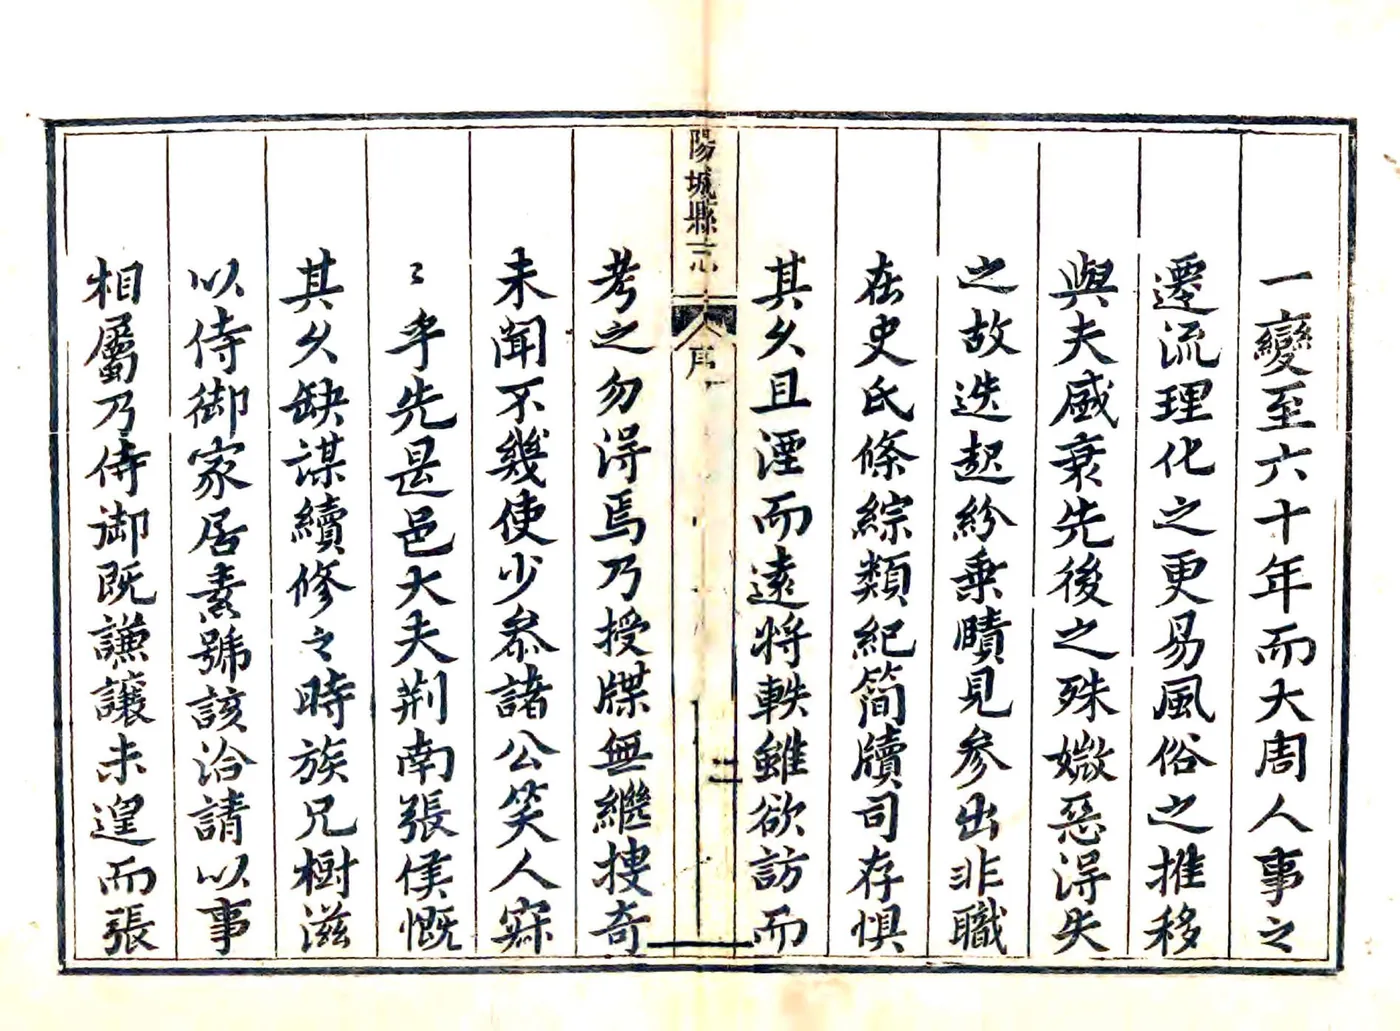 一變至六十年而大周人事之
遷流理化之更易風俗之推移
與夫盛衰先後之殊媺惡得失
之故迭起紛乗賾見參出非職
在史氏條綜類紀簡牘司存懼
其久且湮而遠將軼雖欲訪而
陽城縣志
序
二
考之勿得焉乃授牒無繼搜奇
未聞不幾使少叅諸公笑人寂
〻乎先是邑大夫荆南張侯慨
其久缺謀續修之時族兄樹滋
以侍御家居素號該洽請以事
相屬乃侍御既謙讓未遑而張